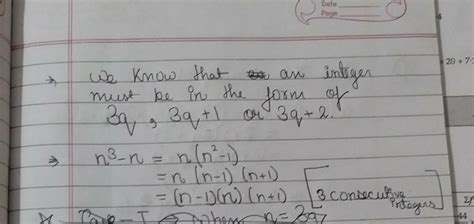 Date
Page
→ We know that an integer
must be in the form of
3q, 3q+1 or 3q+2.
20 + 7
⇒ n³-n = n(n²-1)
= n(n-1)(n+1)
= (n-1)(n)(n+1) [3 consecutive
integers
Case - I When n = 3q